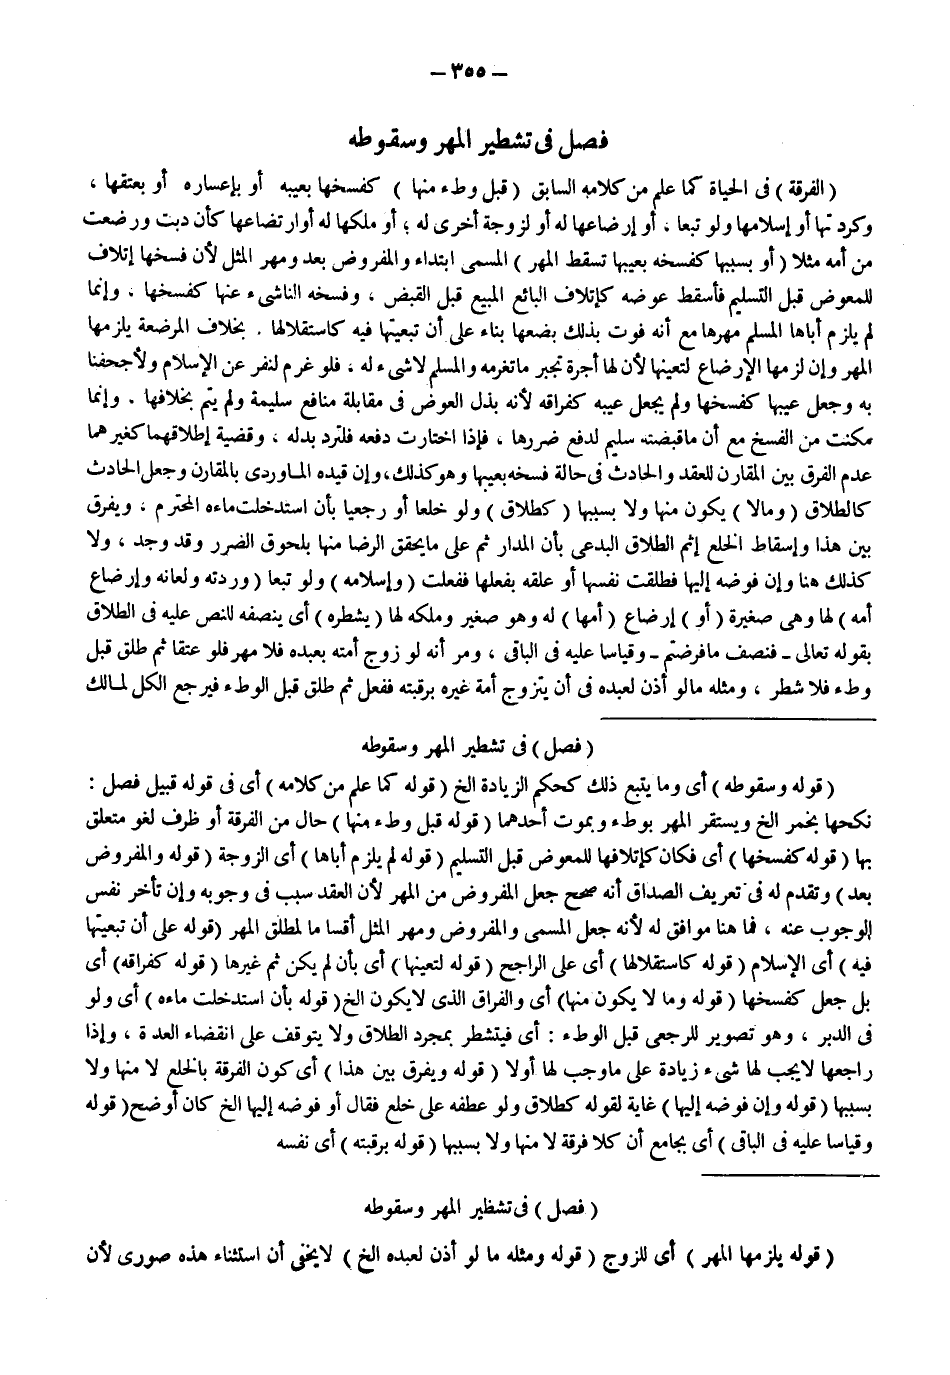 — ٣٥٥ —
فصل فى تشطير المهر وسقوطه
( الفرقة ) فى الحياة كما علم من كلامه السابق ( قبل وطء منها ) كفسخها بعيبه أو بإعساره أو بعتقها ،
وكردتها أو إسلامها ولو تبعا ، أو إرضاعها له أو لزوجة أخرى له ؛ أو ملكها له أو ارتضاعها كأن دبت ورضعت
من أمه مثلا ( أو بسببها كفسخه بعيبها تسقط المهر ) المسمى ابتداء والمفروض بعد ومهر المثل لأن فسخها إتلاف
للمعوض قبل التسليم فأسقط عوضه كإتلاف البائع المبيع قبل القبض ، وفسخه الناشىء عنها كفسخها ، وإنما
لم يلزم أباها المسلم مهرها مع أنه فوت بذلك بضعها بناء على أن تبعيتها فيه كاستقلالها . بخلاف المرضعة يلزمها
المهر وإن لزمها الإرضاع لتعينها لأن لها أجرة تجبر ماتغرمه والمسلم لاشىء له ، فلو غرم لنفر عن الإسلام ولأجحفنا
به وجعل عيبها كفسخها ولم يجعل عيبه كفراقه لأنه بذل العوض فى مقابلة منافع سليمة ولم يتم بخلافها . وإنما
مكنت من الفسخ مع أن ماقبضته سليم لدفع ضررها ، فإذا اختارت دفعه فلترد بدله ، وقضية إطلاقهما كغيرهما
عدم الفرق بين المقارن للعقد والحادث فى حالة فسخه بعيبها وهو كذلك ، وإن قيده الماوردى بالمقارن وجعل الحادث
كالطلاق ( ومالا ) يكون منها ولا بسببها ( كطلاق ) ولو خلعا أو رجعيا بأن استدخلت ماءه المحترم ، ويفرق
بين هذا وإسقاط الخلع إثم الطلاق البدعى بأن المدار ثم على مايحقق الرضا منها بلحوق الضرر وقد وجد ، ولا
كذلك هنا وإن فوضه إليها فطلقت نفسها أو علقه بفعلها ففعلت ( وإسلامه ) ولو تبعا ( وردته ولعانه وإرضاع
أمه ) لها وهى صغيرة ( أو ) إرضاع ( أمها ) له وهو صغير وملكه لها ( يشطره ) أى ينصفه للنص عليه فى الطلاق
بقوله تعالى ـ فنصف مافرضتم ـ وقياسا عليه فى الباقى ، ومر أنه لو زوج أمته بعبده فلا مهر فلو عتقا ثم طلق قبل
وطء فلا شطر ، ومثله مالو أذن لعبده فى أن يتزوج أمة غيره برقبته ففعل ثم طلق قبل الوطء فيرجع الكل لمالك
( فصل ) فى تشطير المهر وسقوطه
( قوله وسقوطه ) أى وما يتبع ذلك كحكم الزيادة الخ ( قوله كما علم من كلامه ) أى فى قوله قبيل فصل :
نكحها بخمر الخ ويستقر المهر بوطء وبموت أحدهما ( قوله قبل وطء منها ) حال من الفرقة أو ظرف لغو متعلق
بها ( قوله كفسخها ) أى فكان كإتلافها للمعوض قبل التسليم ( قوله لم يلزم أباها ) أى الزوجة ( قوله والمفروض
بعد ) وتقدم له فى تعريف الصداق أنه صحح جعل المفروض من المهر لأن العقد سبب فى وجوبه وإن تأخر نفس
الوجوب عنه ، فما هنا موافق له لأنه جعل المسمى والمفروض ومهر المثل أقساما لمطلق المهر ( قوله على أن تبعيتها
فيه ) أى الإسلام ( قوله كاستقلالها ) أى على الراجح ( قوله لتعينها ) أى بأن لم يكن ثم غيرها ( قوله كفراقه ) أى
بل جعل كفسخها ( قوله وما لا يكون منها ) أى والفراق الذى لايكون الخ ( قوله بأن استدخلت ماءه ) أى ولو
فى الدبر ، وهو تصوير للرجعى قبل الوطء : أى فيتشطر بمجرد الطلاق ولا يتوقف على انقضاء العدة ، وإذا
راجعها لايجب لها شىء زيادة على ماوجب لها أولا ( قوله ويفرق بين هذا ) أى كون الفرقة بالخلع لا منها ولا
بسببها ( قوله وإن فوضه إليها ) غاية لقوله كطلاق ولو عطفه على خلع فقال أو فوضه إليها الخ كان أوضح ( قوله
وقياسا عليه فى الباقى ) أى بجامع أن كلا فرقة لا منها ولا بسببها ( قوله برقبته ) أى نفسه
( فصل ) فى تشظير المهر وسقوطه
( قوله يلزمها المهر ) أى للزوج ( قوله ومثله ما لو أذن لعبده الخ ) لايخفى أن استثناء هذه صورى لأن